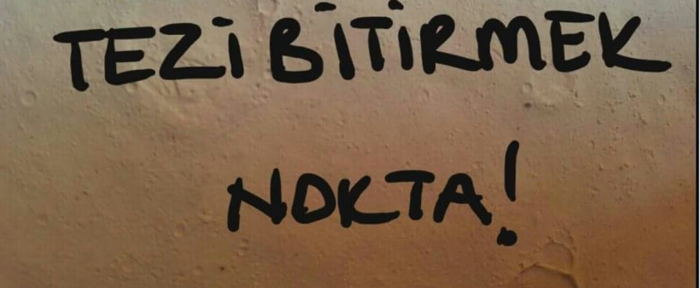 TEZİ BİTİRMEK
NOKTA!